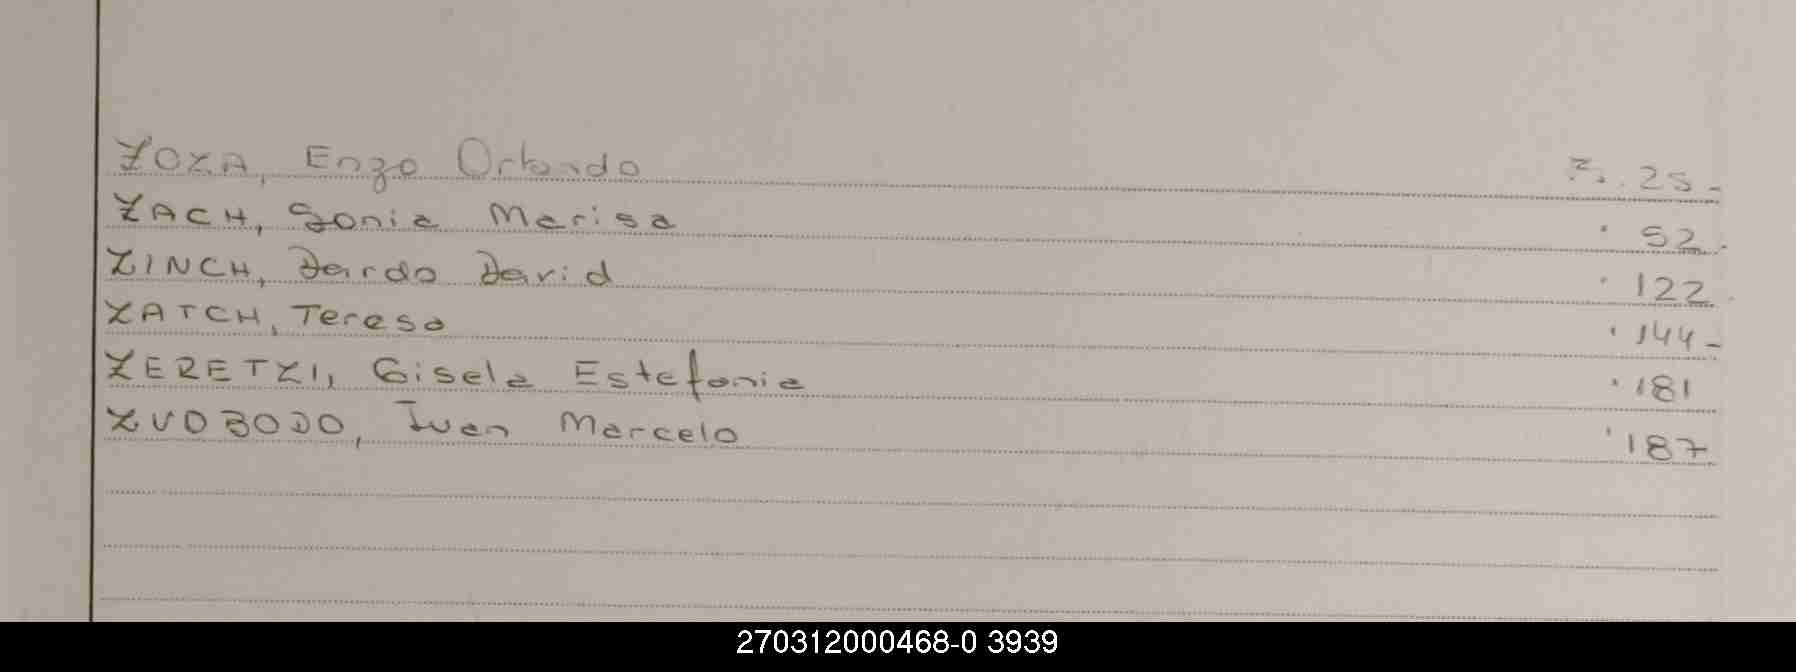 ZOZA, Enzo Orlando F. 25-
ZACH, Sonia Marisa " 52.
ZINCH, Dardo David " 122.
ZATCH, Teresa " 144-
ZERETZI, Gisela Estefania " 181
ZUDBODO, Juan Marcelo " 187
270312000468-0 3939